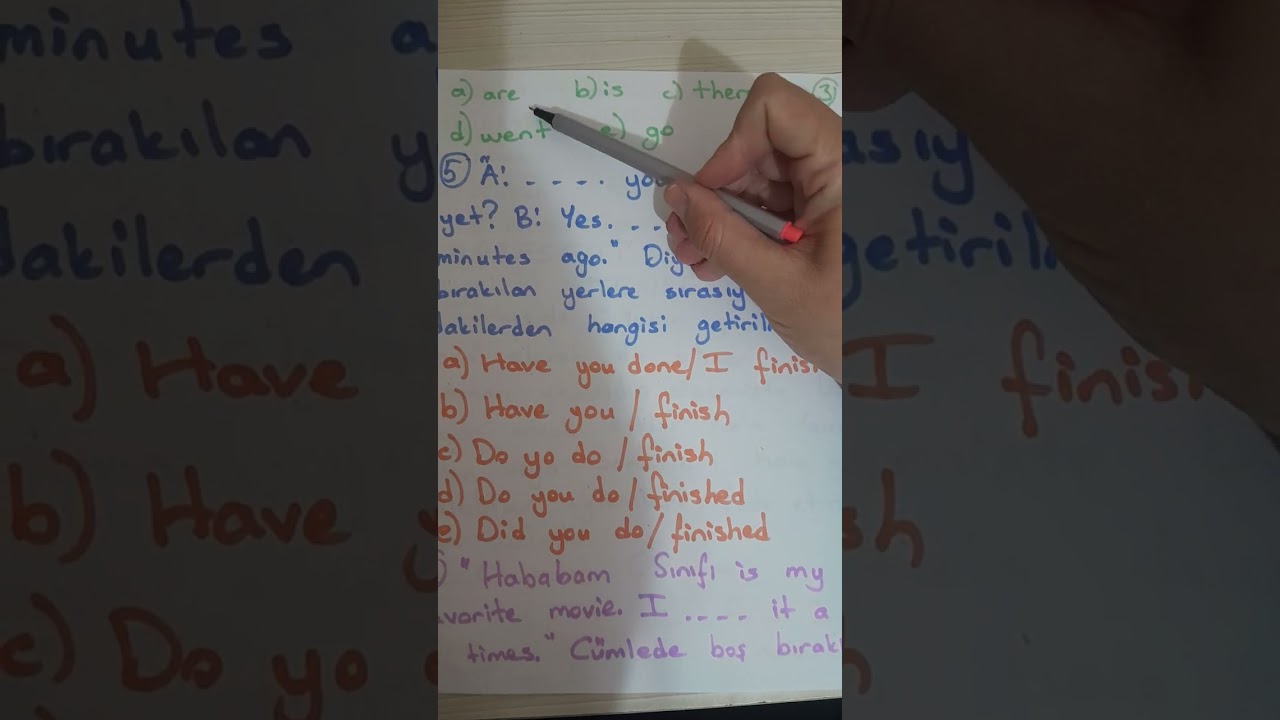 a) are b) is c) ther 3
d) went e) go
5 "A: - - - - you
yet? B: Yes. - -
minutes ago." Diy
bırakılan yerlere sırasıy
dakilerden hangisi getiril
a) Have you done/ I finis
b) Have you / finish
c) Do yo do / finish
d) Do you do / finished
e) Did you do / finished
) "Hababam Sınıfı is my
avorite movie. I - - - - it a
times." Cümlede boş bırak